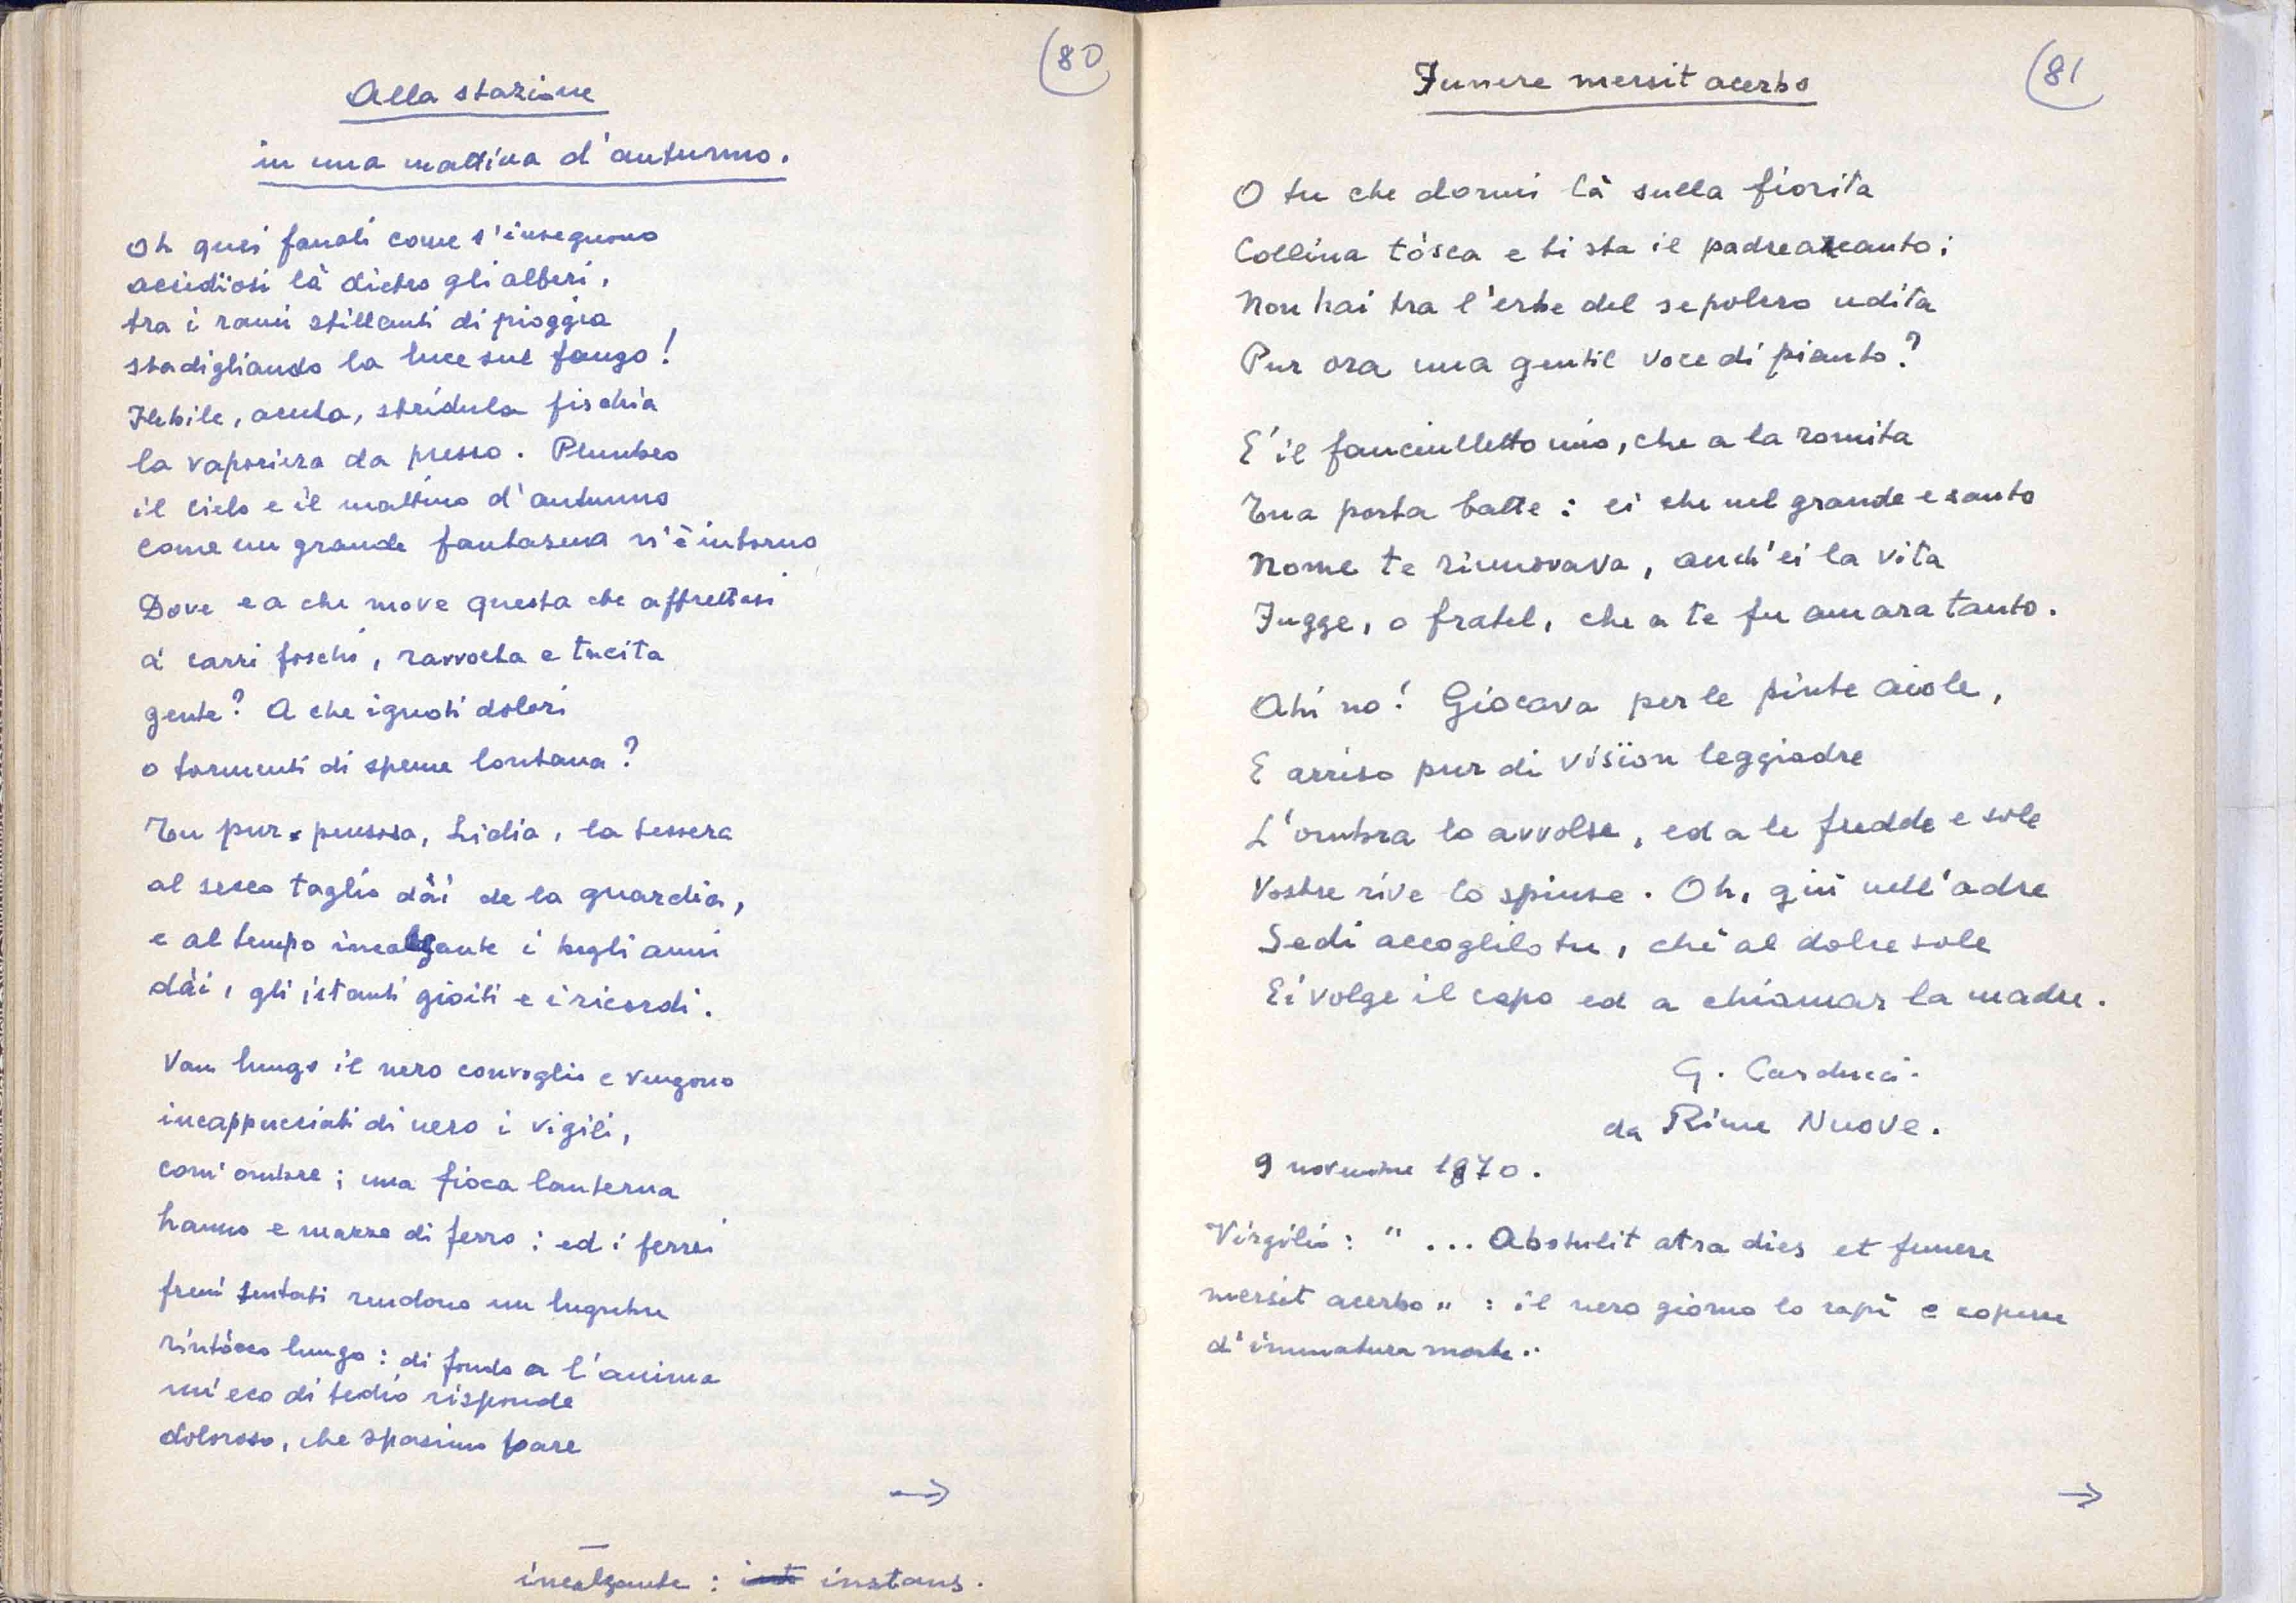 80
Alla stazione
in una mattina d'autunno.
Oh quei fanali come s'inseguono
accidïosi là dietro gli alberi,
tra i rami stillanti di pioggia
sbadigliando la luce sul fango!
Flebile, acuta, stridula fischia
la vaporiera da presso. Plumbeo
il cielo e il mattino d'autunno
come un grande fantasma n'è intorno
Dove e a che move questa che affrettasi
a' carri foschi, ravvolta e tacita
gente? A che ignoti dolori
o tormenti di speme lontana?
Tu pur pensosa, Lidia, la tessera
al secco taglio dài de la guardia,
e al tempo incalzante i begli anni
dài, gli istanti gioiti e i ricordi.
Van lungo il nero convoglio e vengono
incappucciati di nero i vigili,
com' ombre; una fioca lanterna
hanno e mazze di ferro: ed i ferrei
freni tentati rendono un lugubre
rintócco lungo: di fondo a l'anima
un' eco di tedio risponde
doloroso, che spasimo pare
→
incalzante: instans.
81
Funere mersit acerbo
O tu che dormi là sulla fiorita
Collina tósca e ti sta il padre accanto;
Non hai tra l'erbe del sepolcro udita
Pur ora una gentil voce di pianto?
E' il fanciulletto mio, che a la romita
Tua porta batte: ei che nel grande e santo
Nome te rinnovava, anch'ei la vita
Fugge, o fratel, che a te fu amara tanto.
Ahi no! Giocava per le pinte aiole,
E arriso pur di visïon leggiadre
L'ombra lo avvolse, ed a le fredde e sole
Vostre rive lo spinse. Oh, giù nell'adre
Sedi accoglilo tu, chè al dolce sole
Ei volge il capo ed a chiamar la madre.
G. Carducci.
da Rime Nuove.
9 novembre 1870.
Virgilio: "... Abstulit atra dies et funere
mersit acerbo": il nero giorno lo rapì e coperse
d'immatura morte..
→